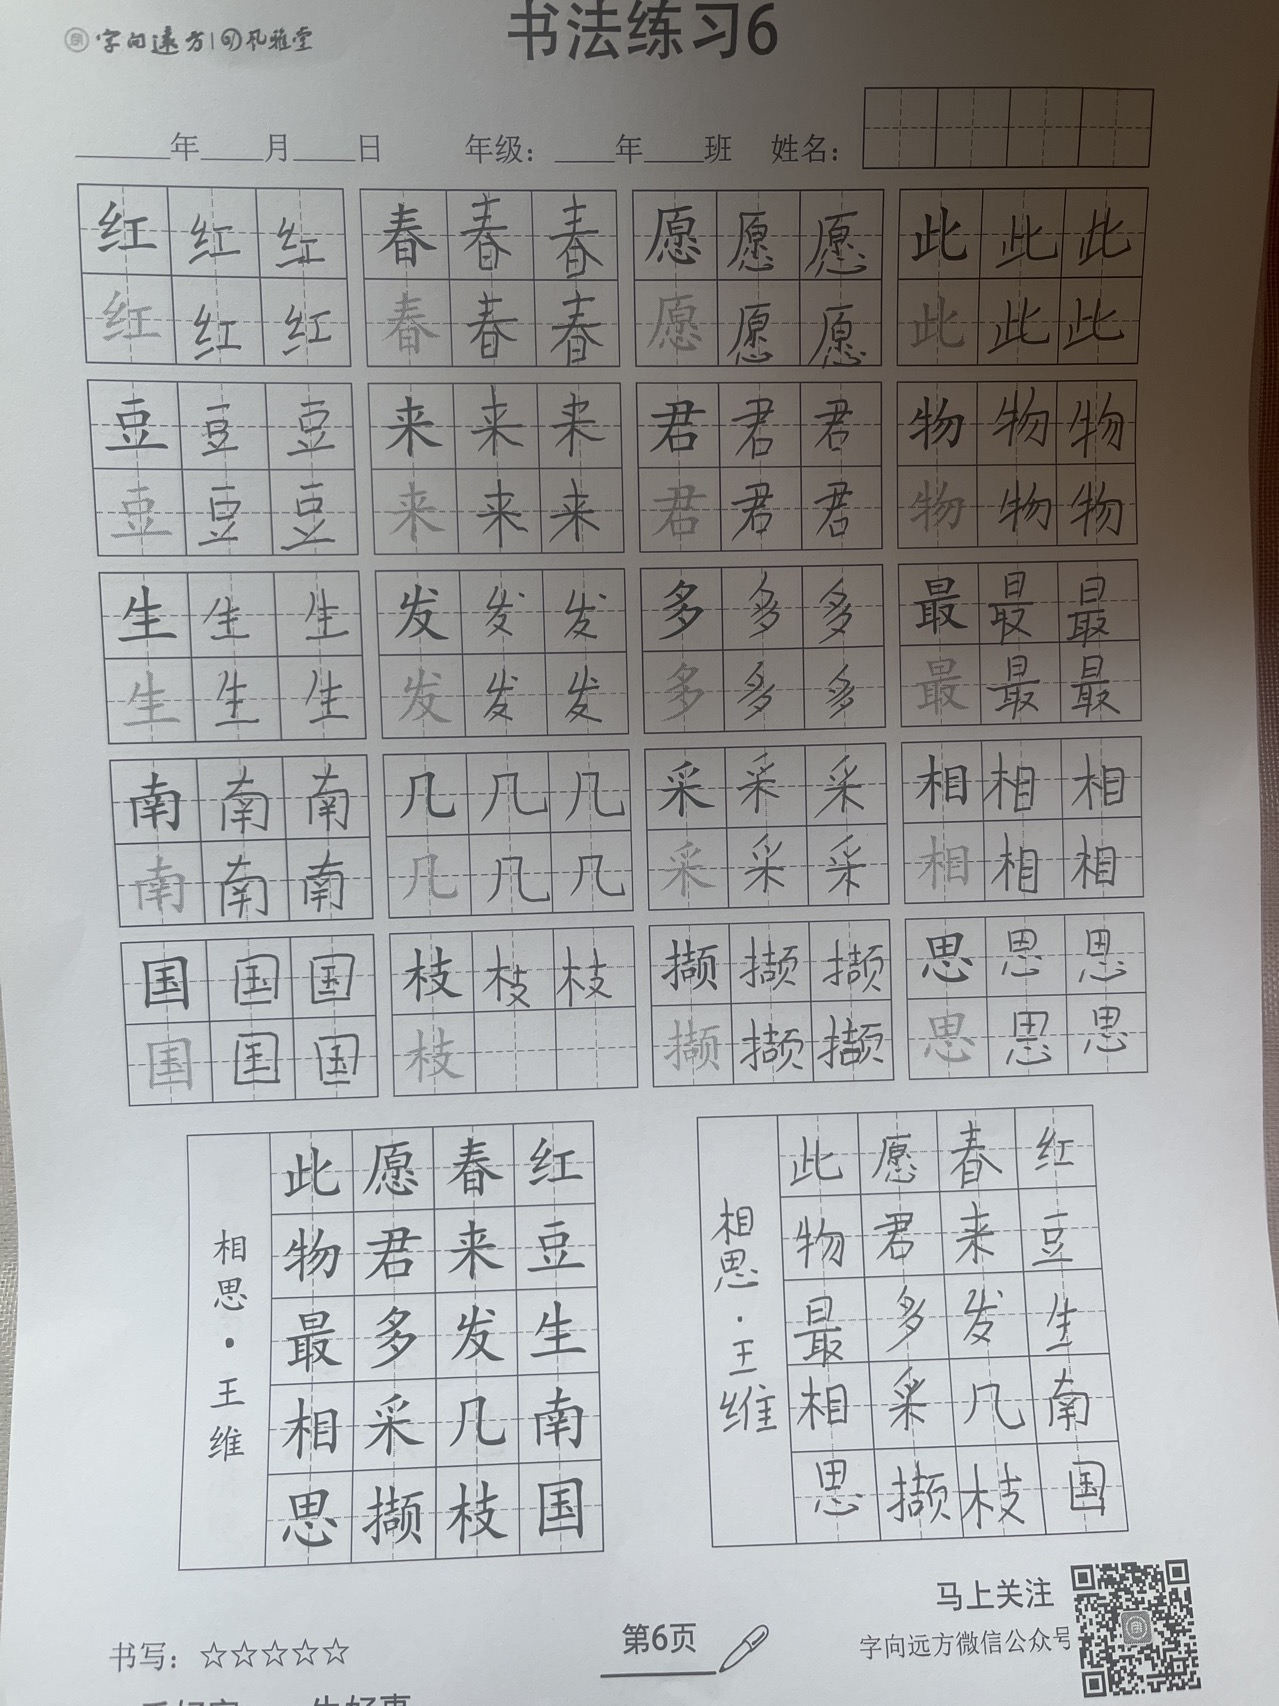 字向遠方|风雅堂
书法练习6
年 月 日 年级: 年 班 姓名:
红 红 红 春 春 春 愿 愿 愿 此 此 此
红 红 红 春 春 春 愿 愿 愿 此 此 此
豆 豆 豆 来 来 来 君 君 君 物 物 物
豆 豆 豆 来 来 来 君 君 君 物 物 物
生 生 生 发 发 发 多 多 多 最 最 最
生 生 生 发 发 发 多 多 多 最 最 最
南 南 南 几 几 几 采 采 采 相 相 相
南 南 南 几 几 几 采 采 采 相 相 相
国 国 国 枝 枝 枝 撷 撷 撷 思 思 思
国 国 国 枝 撷 撷 撷 思 思 思
红豆生南国
春来发几枝
愿君多采撷
此物最相思
相思·王维
红豆生南国
春来发几枝
愿君多采撷
此物最相思
相思·王维
马上关注
字向远方微信公众号
书写:☆☆☆☆☆
第6页